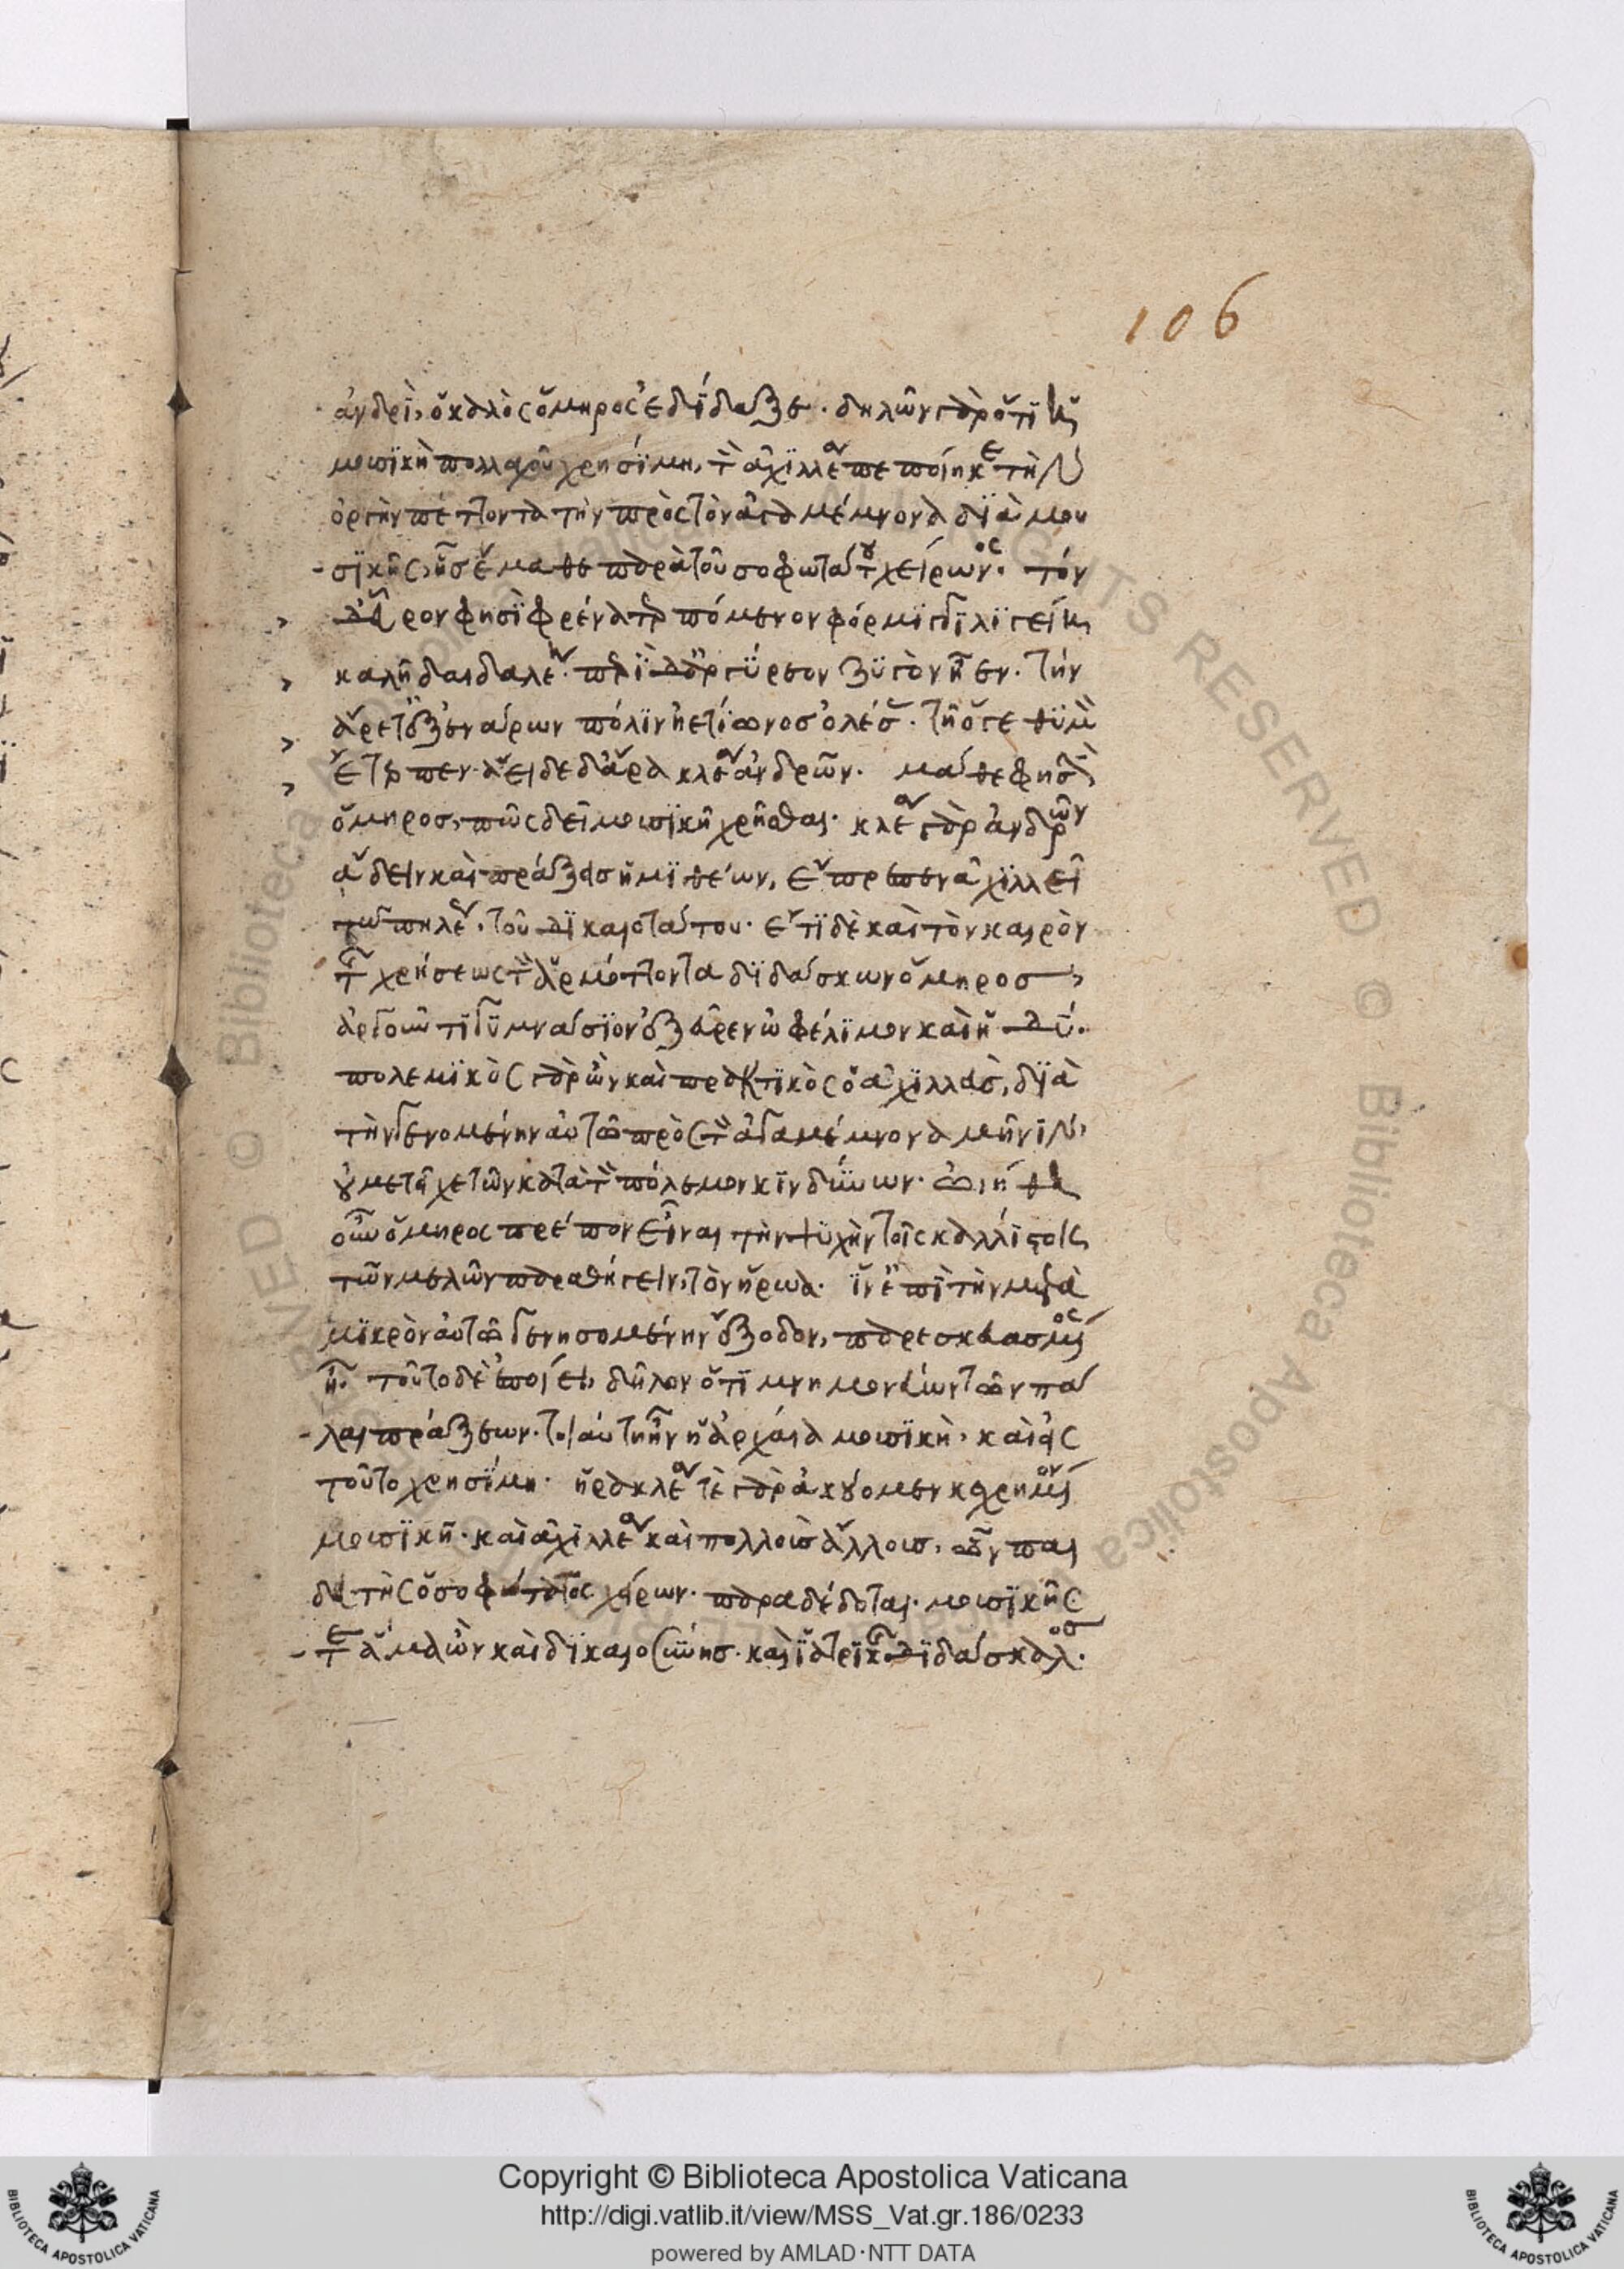 106
ἀνδρὶ, ὁ καλὸς ὅμηρος ἐδίδαξε. δηλῶν γὰρ ὅτι ἡ
μουσικὴ πολλαχοῦ χρησίμη, τὸν ἀχιλλέα πεποίηκε τὴν
ὀργὴν πέττοντα τὴν πρὸς τὸν ἀγαμέμνονα διὰ μου
σικῆς, ἧς ἔμαθε παρὰ τοῦ σοφωτάτου χείρωνος. τὸν
δ' εὗρον φησὶ φρένα τερπόμενον φόρμιγγι λιγείῃ
καλῇ δαιδαλέῃ. περὶ δ' ἀργύρεον ζυγὸν ἦεν. τὴν
ἄρετ' ἐξ ἐνάρων πόλιν ἠετίωνος ὀλέσας. τῇ ὅγε θυμὸν
ἔτερπεν. ἄειδε δ' ἄρα κλέα ἀνδρῶν. μάθε φησὶν
ὅμηρος, πῶς δεῖ μουσικῇ χρῆσθαι. κλέα γὰρ ἀνδρῶν
ἄδειν καὶ πράξεις ἡμιθέων, ἔπρεπεν ἀχιλλεῖ
τῷ πηλέως τοῦ δικαιοτάτου. ἔτι δὲ καὶ τὸν καιρὸν
τῆς χρήσεως τὸν ἁρμόττοντα διδάσκων ὅμηρος,
ἀργοῦντι γυμνάσιον ἐξεῦρεν ὠφέλιμον καὶ ἡδύ.
πολεμικὸς γὰρ ὢν καὶ πρακτικὸς ὁ ἀχιλλεὺς, διὰ
τὴν γενομένην αὐτῷ πρὸς τὸν ἀγαμέμνονα μῆνιν,
οὐ μετεῖχε τῶν κατὰ τὸν πόλεμον κινδύνων. ᾠήθη
οὖν ὅμηρος πρέπον εἶναι τὴν ψυχὴν τοῖς καλλίστοις
τῶν μελῶν παραθήγειν, τὸν ἥρωα. ἵν' ἐπὶ τὴν μετὰ
μικρὸν αὐτῷ γενησομένην ἔξοδον, παρεσκευασμένος
ᾖ. τοῦτο δὲ ἐποίει, δῆλον ὅτι μνημονεύων τῶν πά
λαι πράξεων. τοιαύτη ἦν ἡ ἀρχαία μουσικὴ, καὶ εἰς
τοῦτο χρησίμη. ἡρακλέα τὲ γὰρ ἀκούομεν κεχρημένον
μουσικῇ. καὶ ἀχιλλέα καὶ πολλοὺς ἄλλους, ὧν παι
δευτὴς ὁ σοφώτατος χείρων. παραδέδοται. μουσικῆς
τε ἅμα ὢν καὶ δικαιοσύνης. καὶ ἰατρικῆς διδάσκαλος.
Copyright © Biblioteca Apostolica Vaticana
http://digi.vatlib.it/view/MSS_Vat.gr.186/0233
powered by AMLAD·NTT DATA